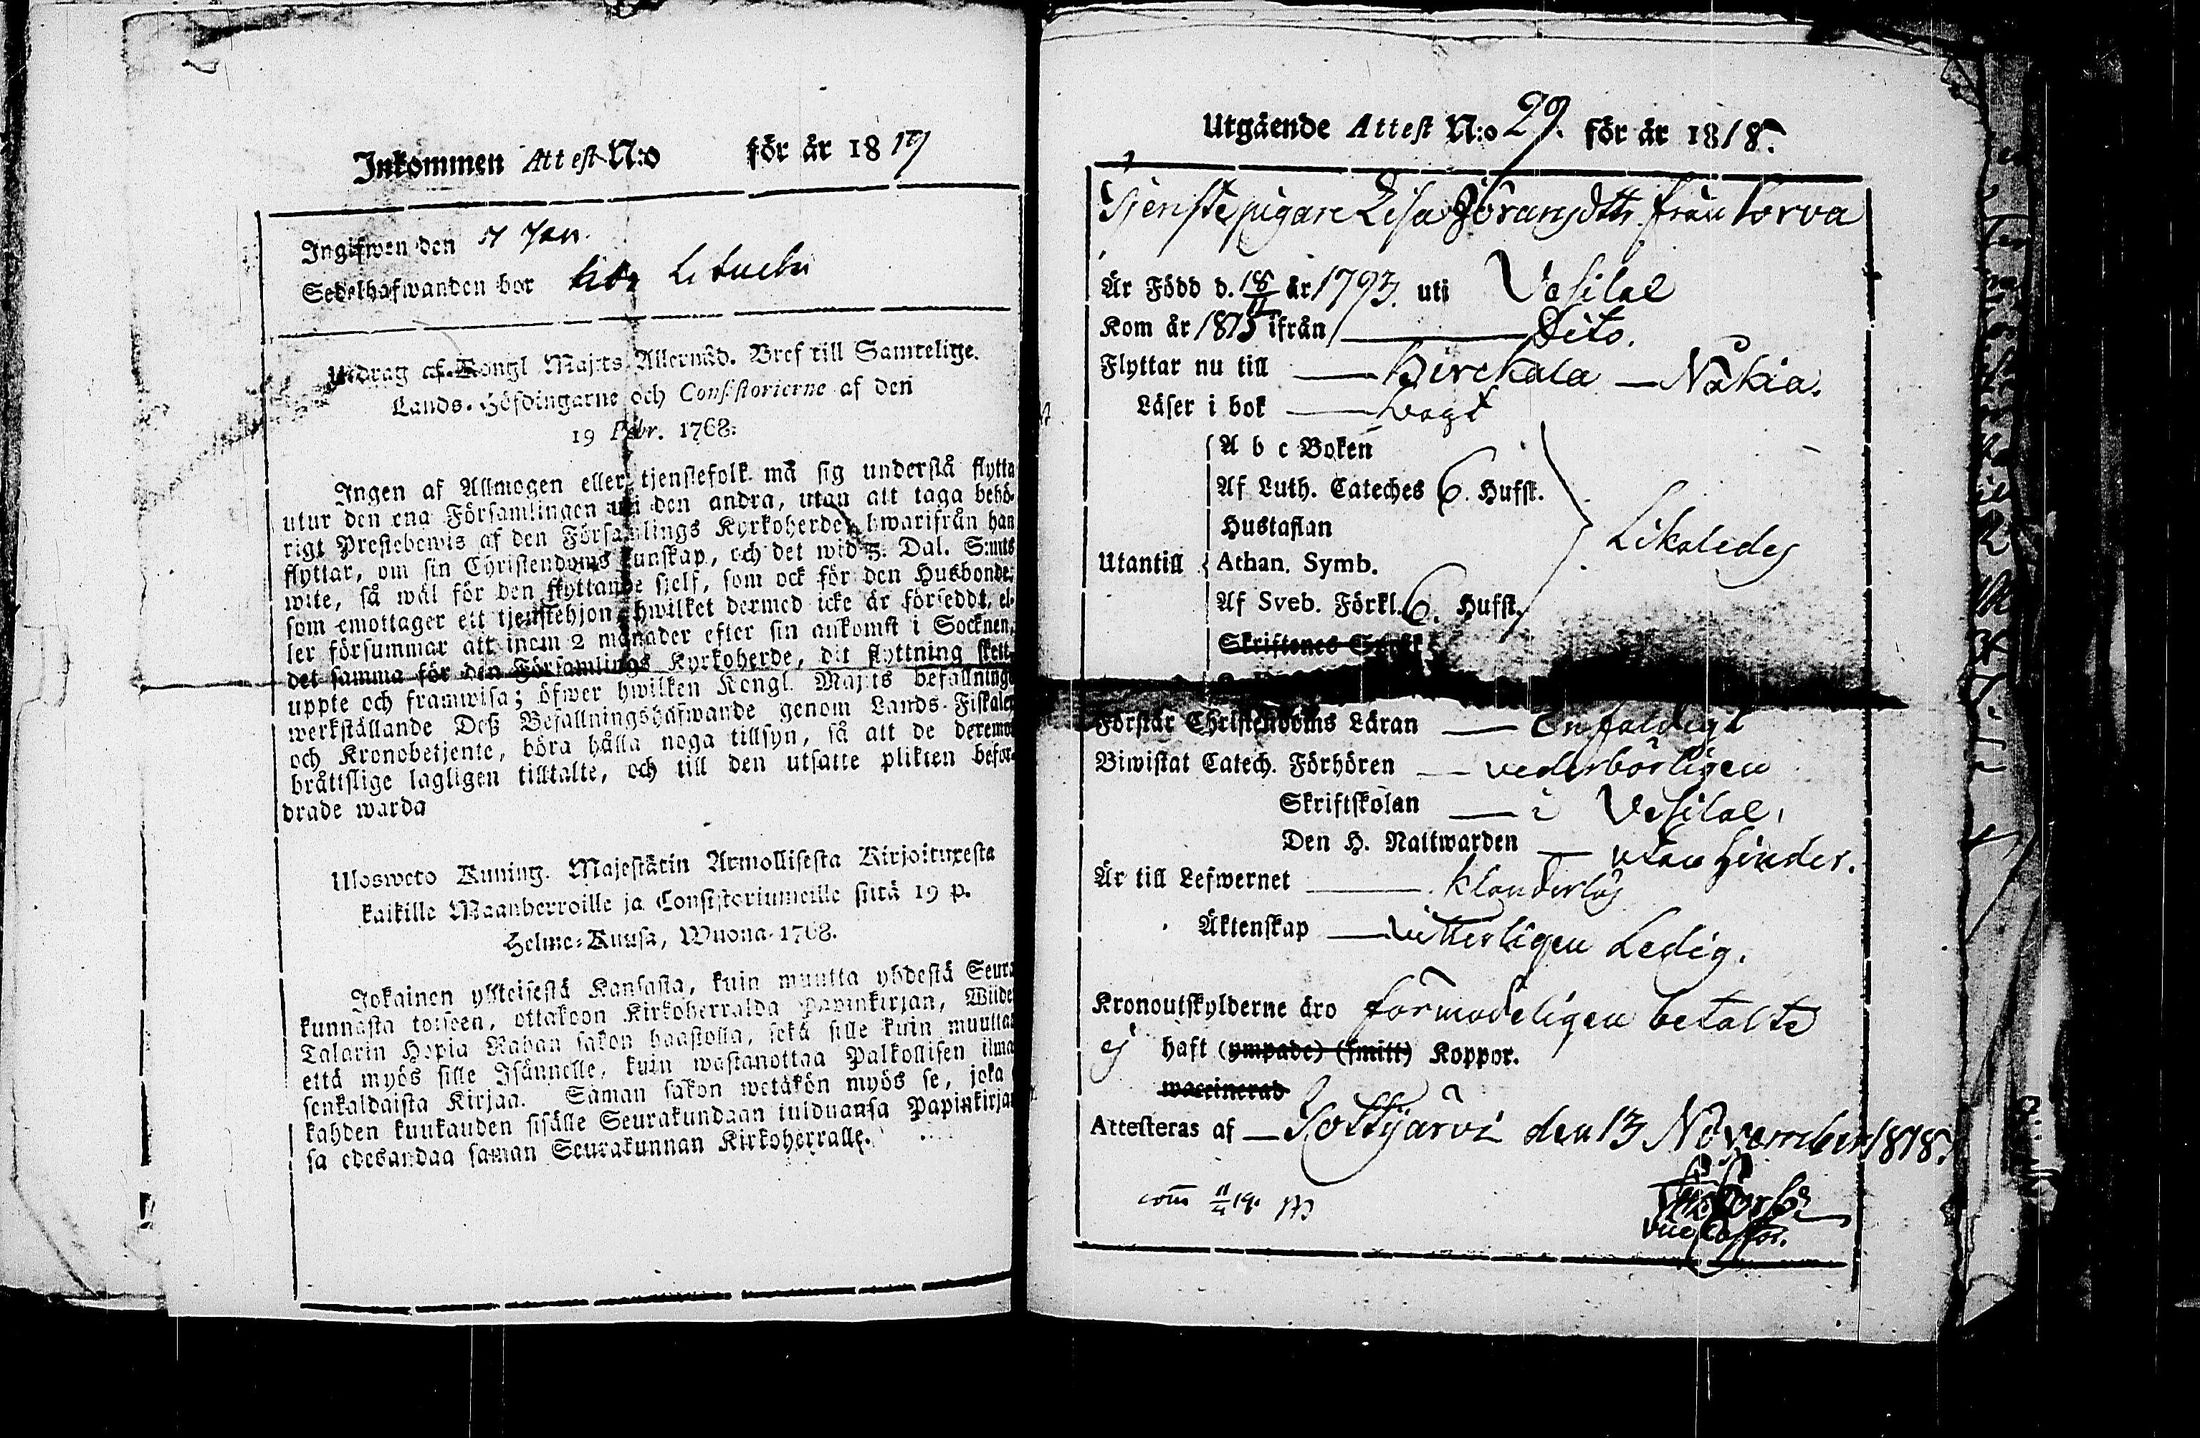 Inkommen Attest N:o för år 1819
Ingifwen den 7 Jan.
Sedelhafwanden bor
Utdrag af Kongl Maj:ts Allernåd. Bref till Samtelige
Lands-Höfdingarne och Consistorierne af den
19 Febr. 1768:
Ingen af Allmogen eller tjenstefolk må sig understå flytta
utur den ena Församlingen uti den andra, utan att taga behö-
rigt Prestebewis af den Församlings Kyrkoherde, hwarifrån han
flyttar, om sin Christendoms kunskap, och det wid 5. Dal. S:mts
wite, så wäl för den flyttande sjelf, som ock för den Husbonde,
som emottager ett tjenstehjon, hwilket dermed icke är försedt, el-
ler försummar att inom 2 månader efter sin ankomst i Socknen,
det samma för den Församlings Kyrkoherde, dit flyttning skett,
uppte och framwisa; öfwer hwilken Kongl. Maj:ts befallnings
werkställande Deß Befallningshafwande genom Lands-Fiskaler
och Kronobetjente, böra hålla noga tillsyn, så att de deremot
bråttslige lagligen tilltalte, och till den utsatte plikten befor-
drade warda
Ulosweto Kuning. Majestätin Armollisesta Kirjoituxesta
kaikille Maanherroille ja Consistoriumeille siitä 19 p.
Helme-Kuusa, Wuona 1768.
Jokainen yhteisestä Kansasta, kuin muutta yhdestä Seura-
kunnasta toiseen, ottakoon Kirkoherralda Papinkirjan, Wiide
Talarin Hopia Rahan sakon haastolla, sekä sille kuin muutta
että myös sille Isännelle, kuin wastanottaa Palkollisen ilma
senkaldaista Kirjaa. Saman sakon wetäkön myös se, joka
kahden kuukauden sisälle Seurakundaan tulduansa Papinkirjan
sa edesandaa saman Seurakunnan Kirkoherralle.
Utgående Attest N:o 29. för år 1818.
Tjenstepigare Lisa Jöransdttr från Korva
Är Född d. 18/11 år 1793. uti Vesilae
Kom år 1815 ifrån Dito.
Flyttar nu till Birckala Nåkia.
Läser i bok svagt
A b c Boken
Af Luth. Cateches 6. Hufst.
Hustaflan
Utantill Athan. Symb. Likaledes
Af Sveb. Förkl. 6. Hufst.
Förstår Christendoms Läran Enfaldigt
Biwistat Catech. Förhören vederbörligen
Skriftskolan i Vesilae,
Den H. Nattwarden utan hinder.
Är till Lefwernet klanderlös
Äktenskap vitterligen Ledig.
Kronoutskylderne äro förmodeligen betalte
ej haft (ympade) (smitt) Koppor.
waccinerad
Attesteras af Sottijärvi den 13 November 1818.
vice Pastor.